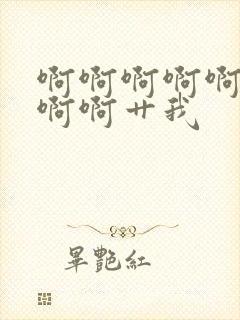 啊啊啊啊啊
啊啊艹我
畢艷紅